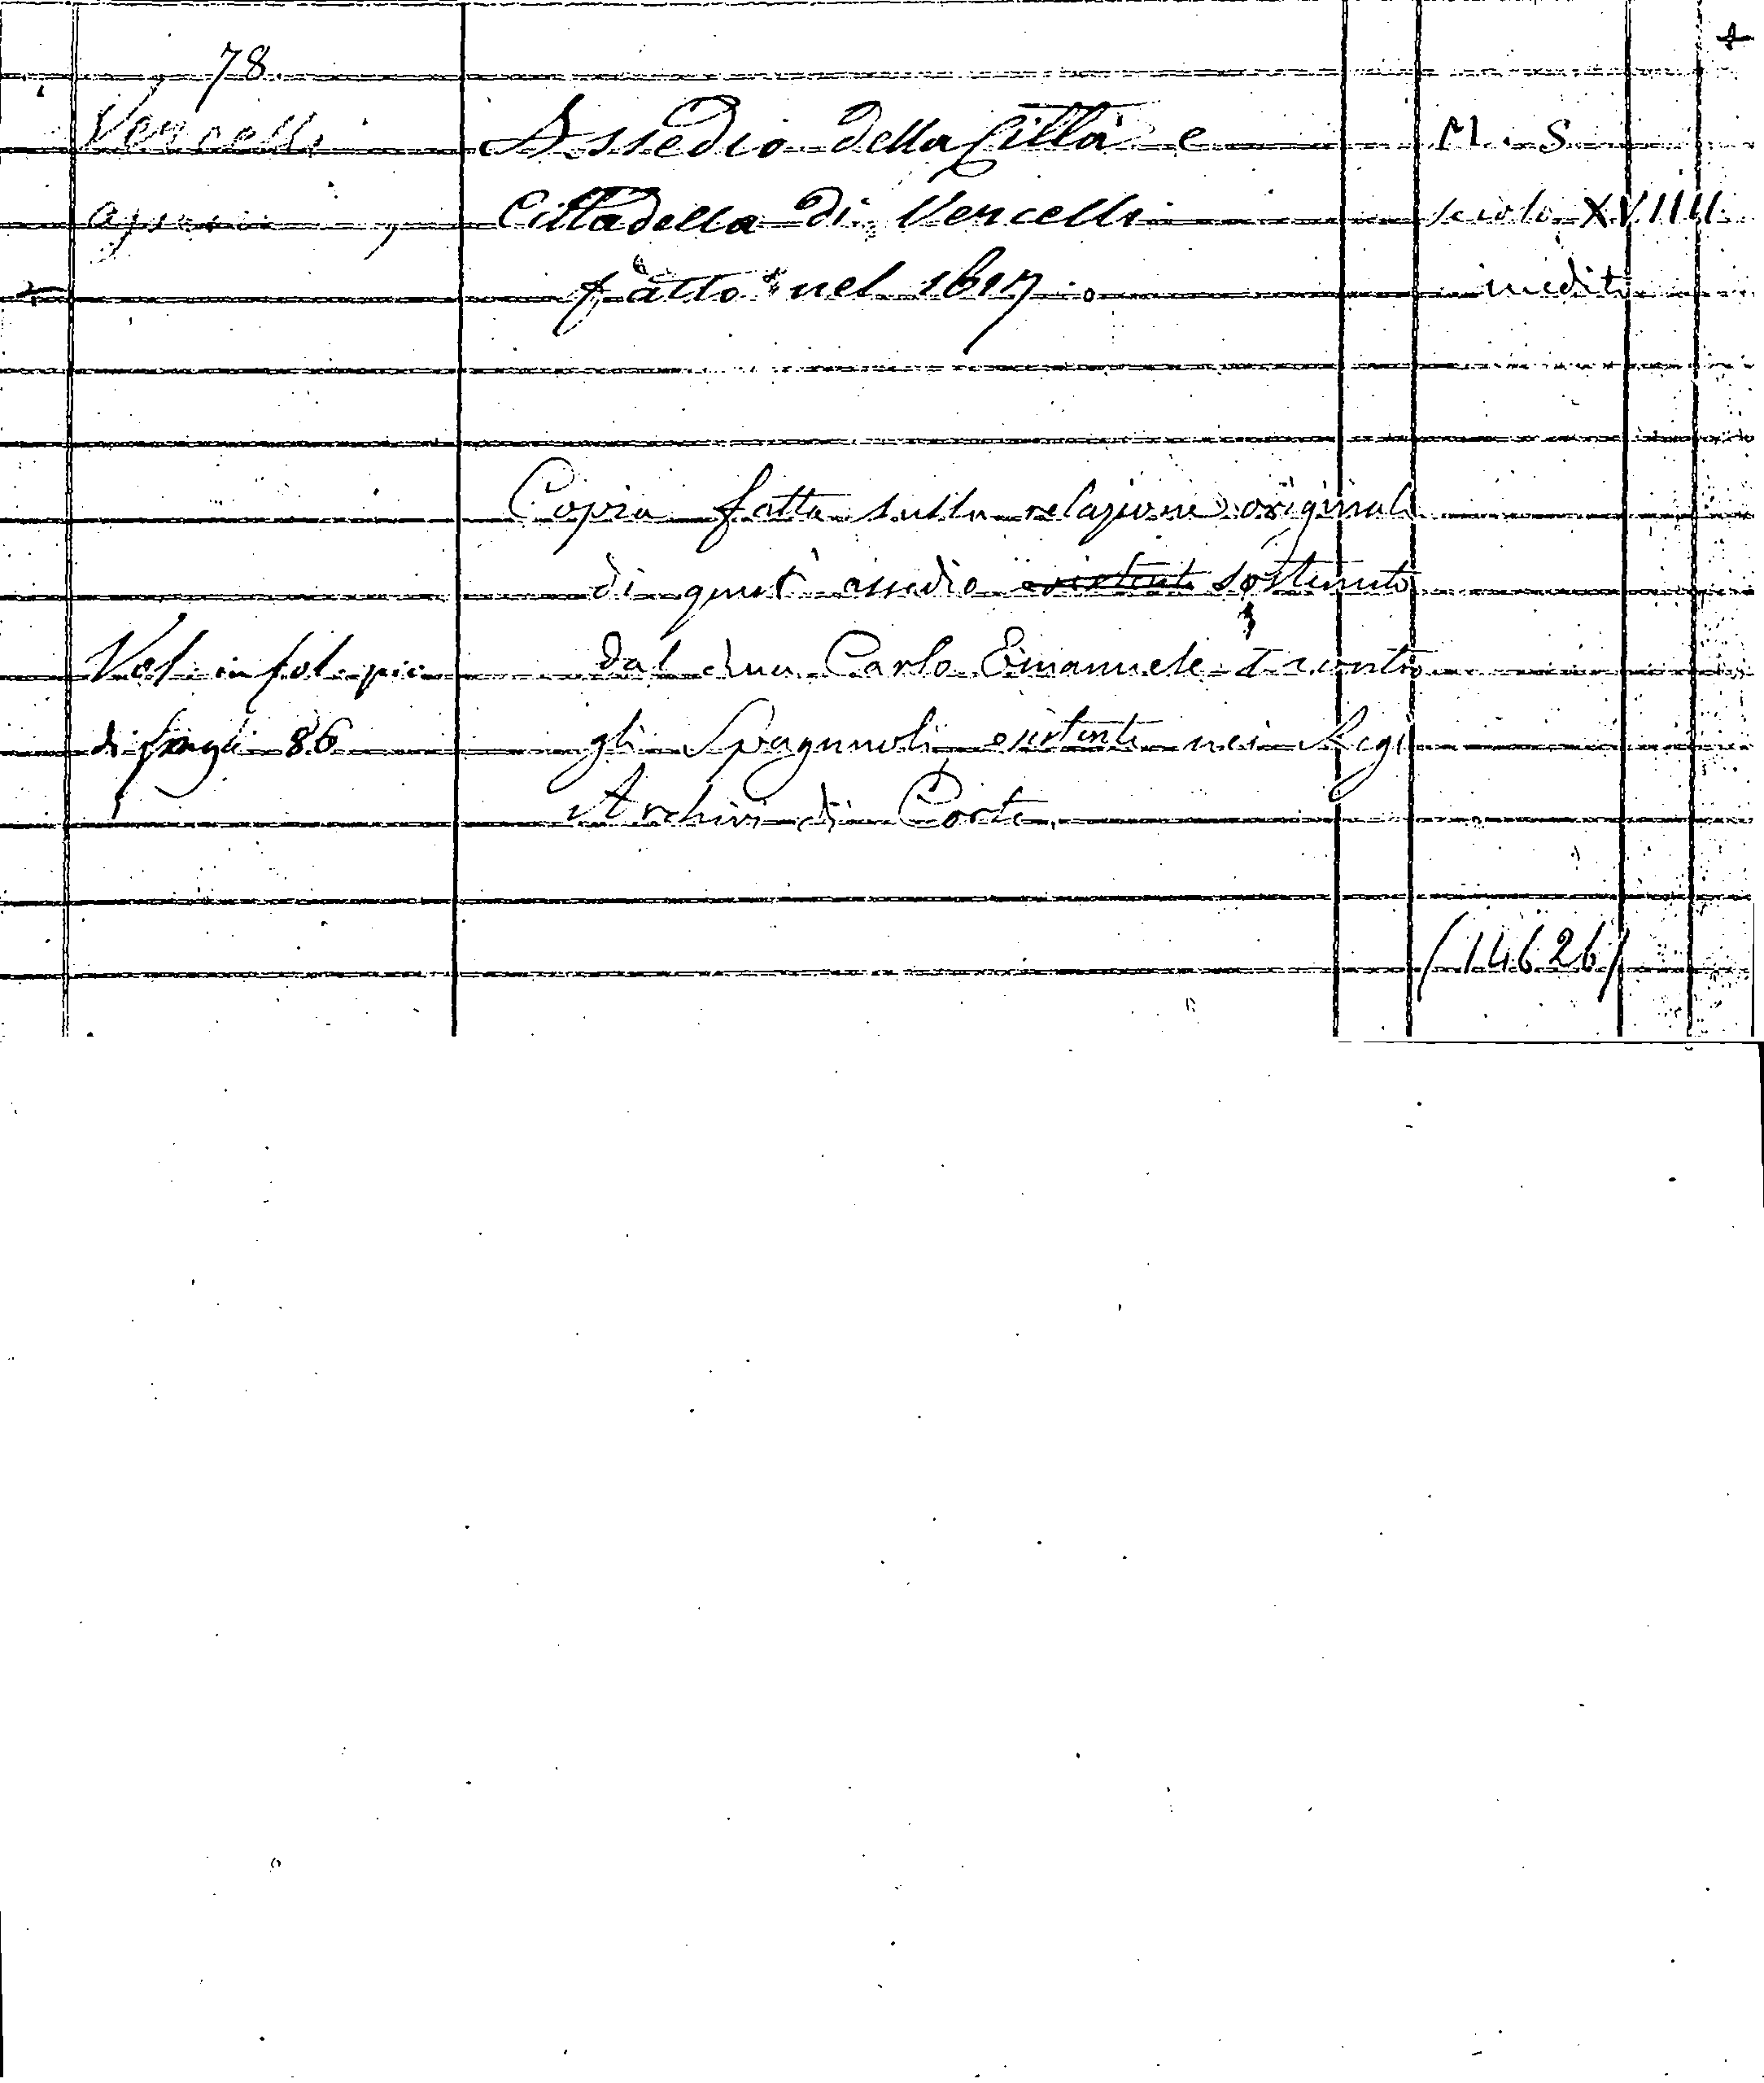 78
Vercelli
Assedio della Città e
M. S.
Cittadella di Vercelli
secolo XVIIII
fatto nel 1617.
inedito
Copia fatta sulla relazione originale
di quest' assedio esistente sostenuto
Vol. in fol. pic.
dal duca Carlo Emanuele I contro
di fogli 86
gli Spagnuoli, esistente nei Regi
Archivi di Corte.
(14626)